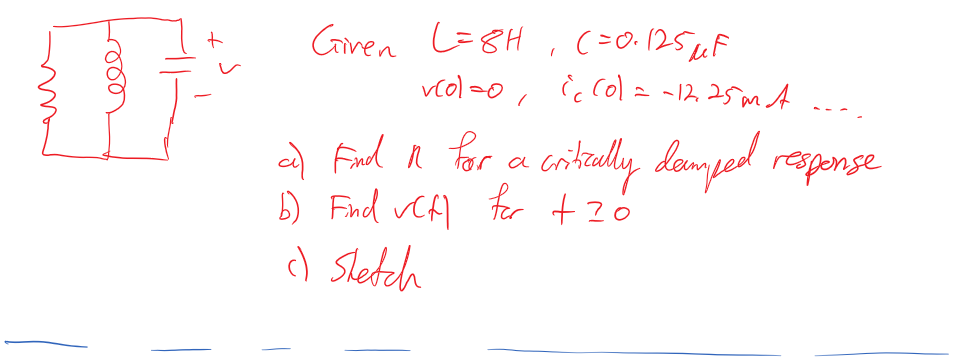 Given L=8H, C=0.125μF
+
v
-
v(0)=0, ic(0)=-12.25mA ....
a) Find R for a critically damped response
b) Find v(t) for t≥0
c) Sketch